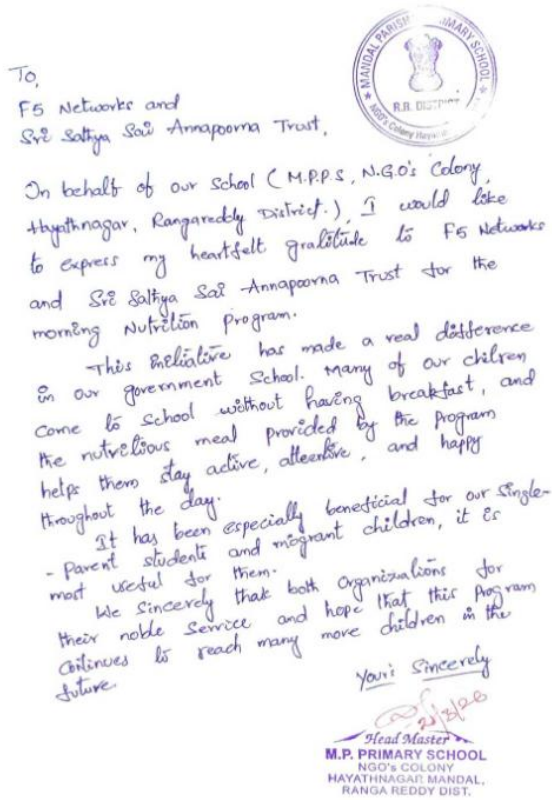 MANDAL PARISH PRIMARY SCHOOL
R.R. DISTRICT
NGO's Colony Hayat
To,
F5 Networks and
Sri Sathya Sai Annapoorna Trust,
On behalf of our School (M.P.P.S, N.G.O's Colony,
Hayathnagar, Rangareddy District.), I would like
to express my heartfelt gratitude to F5 Networks
and Sri Sathya Sai Annapoorna Trust for the
morning Nutrition Program.
This initiative has made a real difference
in our government School. Many of our chilren
come to school without having breakfast, and
the nutritious meal provided by the Program
helps them stay active, attentive, and happy
throughout the day.
It has been especially beneficial for our Single-
- parent students and migrant children, it is
most useful for them.
We Sincerely thak both Organizations for
their noble Service and hope that this Program
continues to reach many more children in the
future
Your's Sincerely
Head Master
M.P. PRIMARY SCHOOL
NGO's COLONY
HAYATHNAGAR MANDAL,
RANGA REDDY DIST.